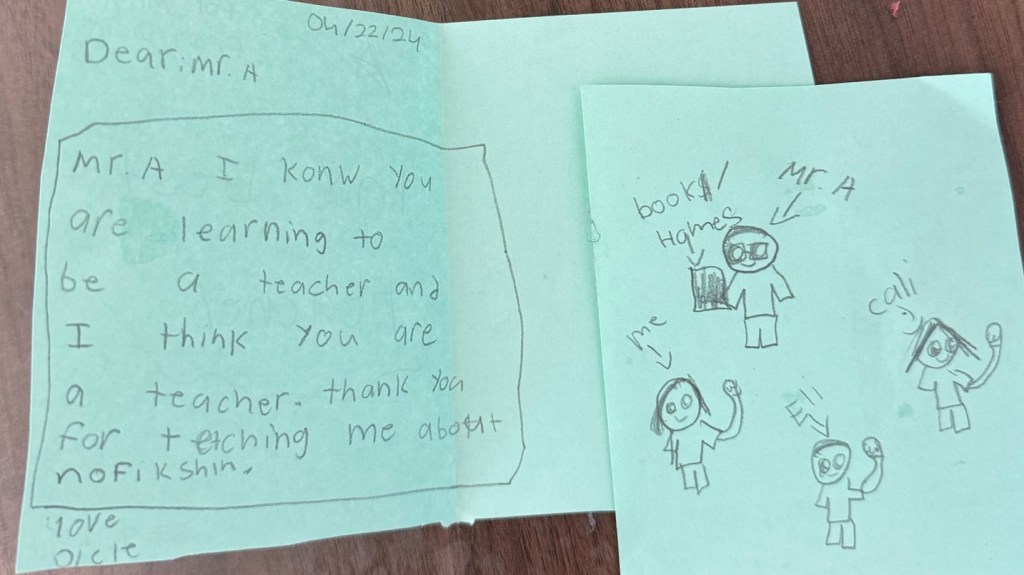 04/22/24
Dear: mr. A
Mr. A I konw you
are learning to
be a teacher and
I think you are
a teacher. thank you
for tetching me about
nofikshin.
love
book/
Hqmes
Mr. A
me
cali
Eli